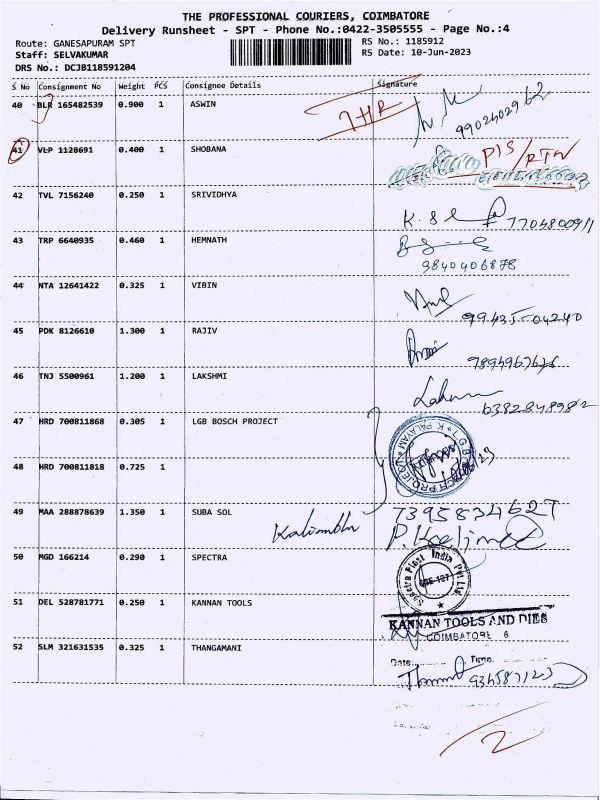 THE PROFESSIONAL COURIERS, COIMBATORE
Delivery Runsheet - SPT - Phone No.:0422-3505555 - Page No.:4
Route: GANESAPURAM SPT RS No.: 1185912
Staff: SELVAKUMAR RS Date: 10-Jun-2023
DRS No.: DCJB118591204
S No Consignment No Weight PCS Consignee Details Signature
40 BLR 165482539 0.900 1 ASWIN
9902402962
41 VLP 1128691 0.400 1 SHOBANA
42 TVL 7156240 0.250 1 SRIVIDHYA
7704800911
43 TRP 6640935 0.460 1 HEMNATH
9840406878
44 NTA 12641422 0.325 1 VIBIN
99435-04240
45 PDK 8126610 1.300 1 RAJIV
46 TNJ 5500961 1.200 1 LAKSHMI
6382848982
47 HRD 700811868 0.305 1 LGB BOSCH PROJECT
48 HRD 700811818 0.725 1
49 MAA 288878639 1.350 1 SUBA SOL
50 MGD 166214 0.290 1 SPECTRA
Spectra Plast India Pvt Ltd.
51 DEL 528781771 0.250 1 KANNAN TOOLS
KANNAN TOOLS AND DIES
COIMBATORE 6
52 SLM 321631535 0.325 1 THANGAMANI
Date: Time
2